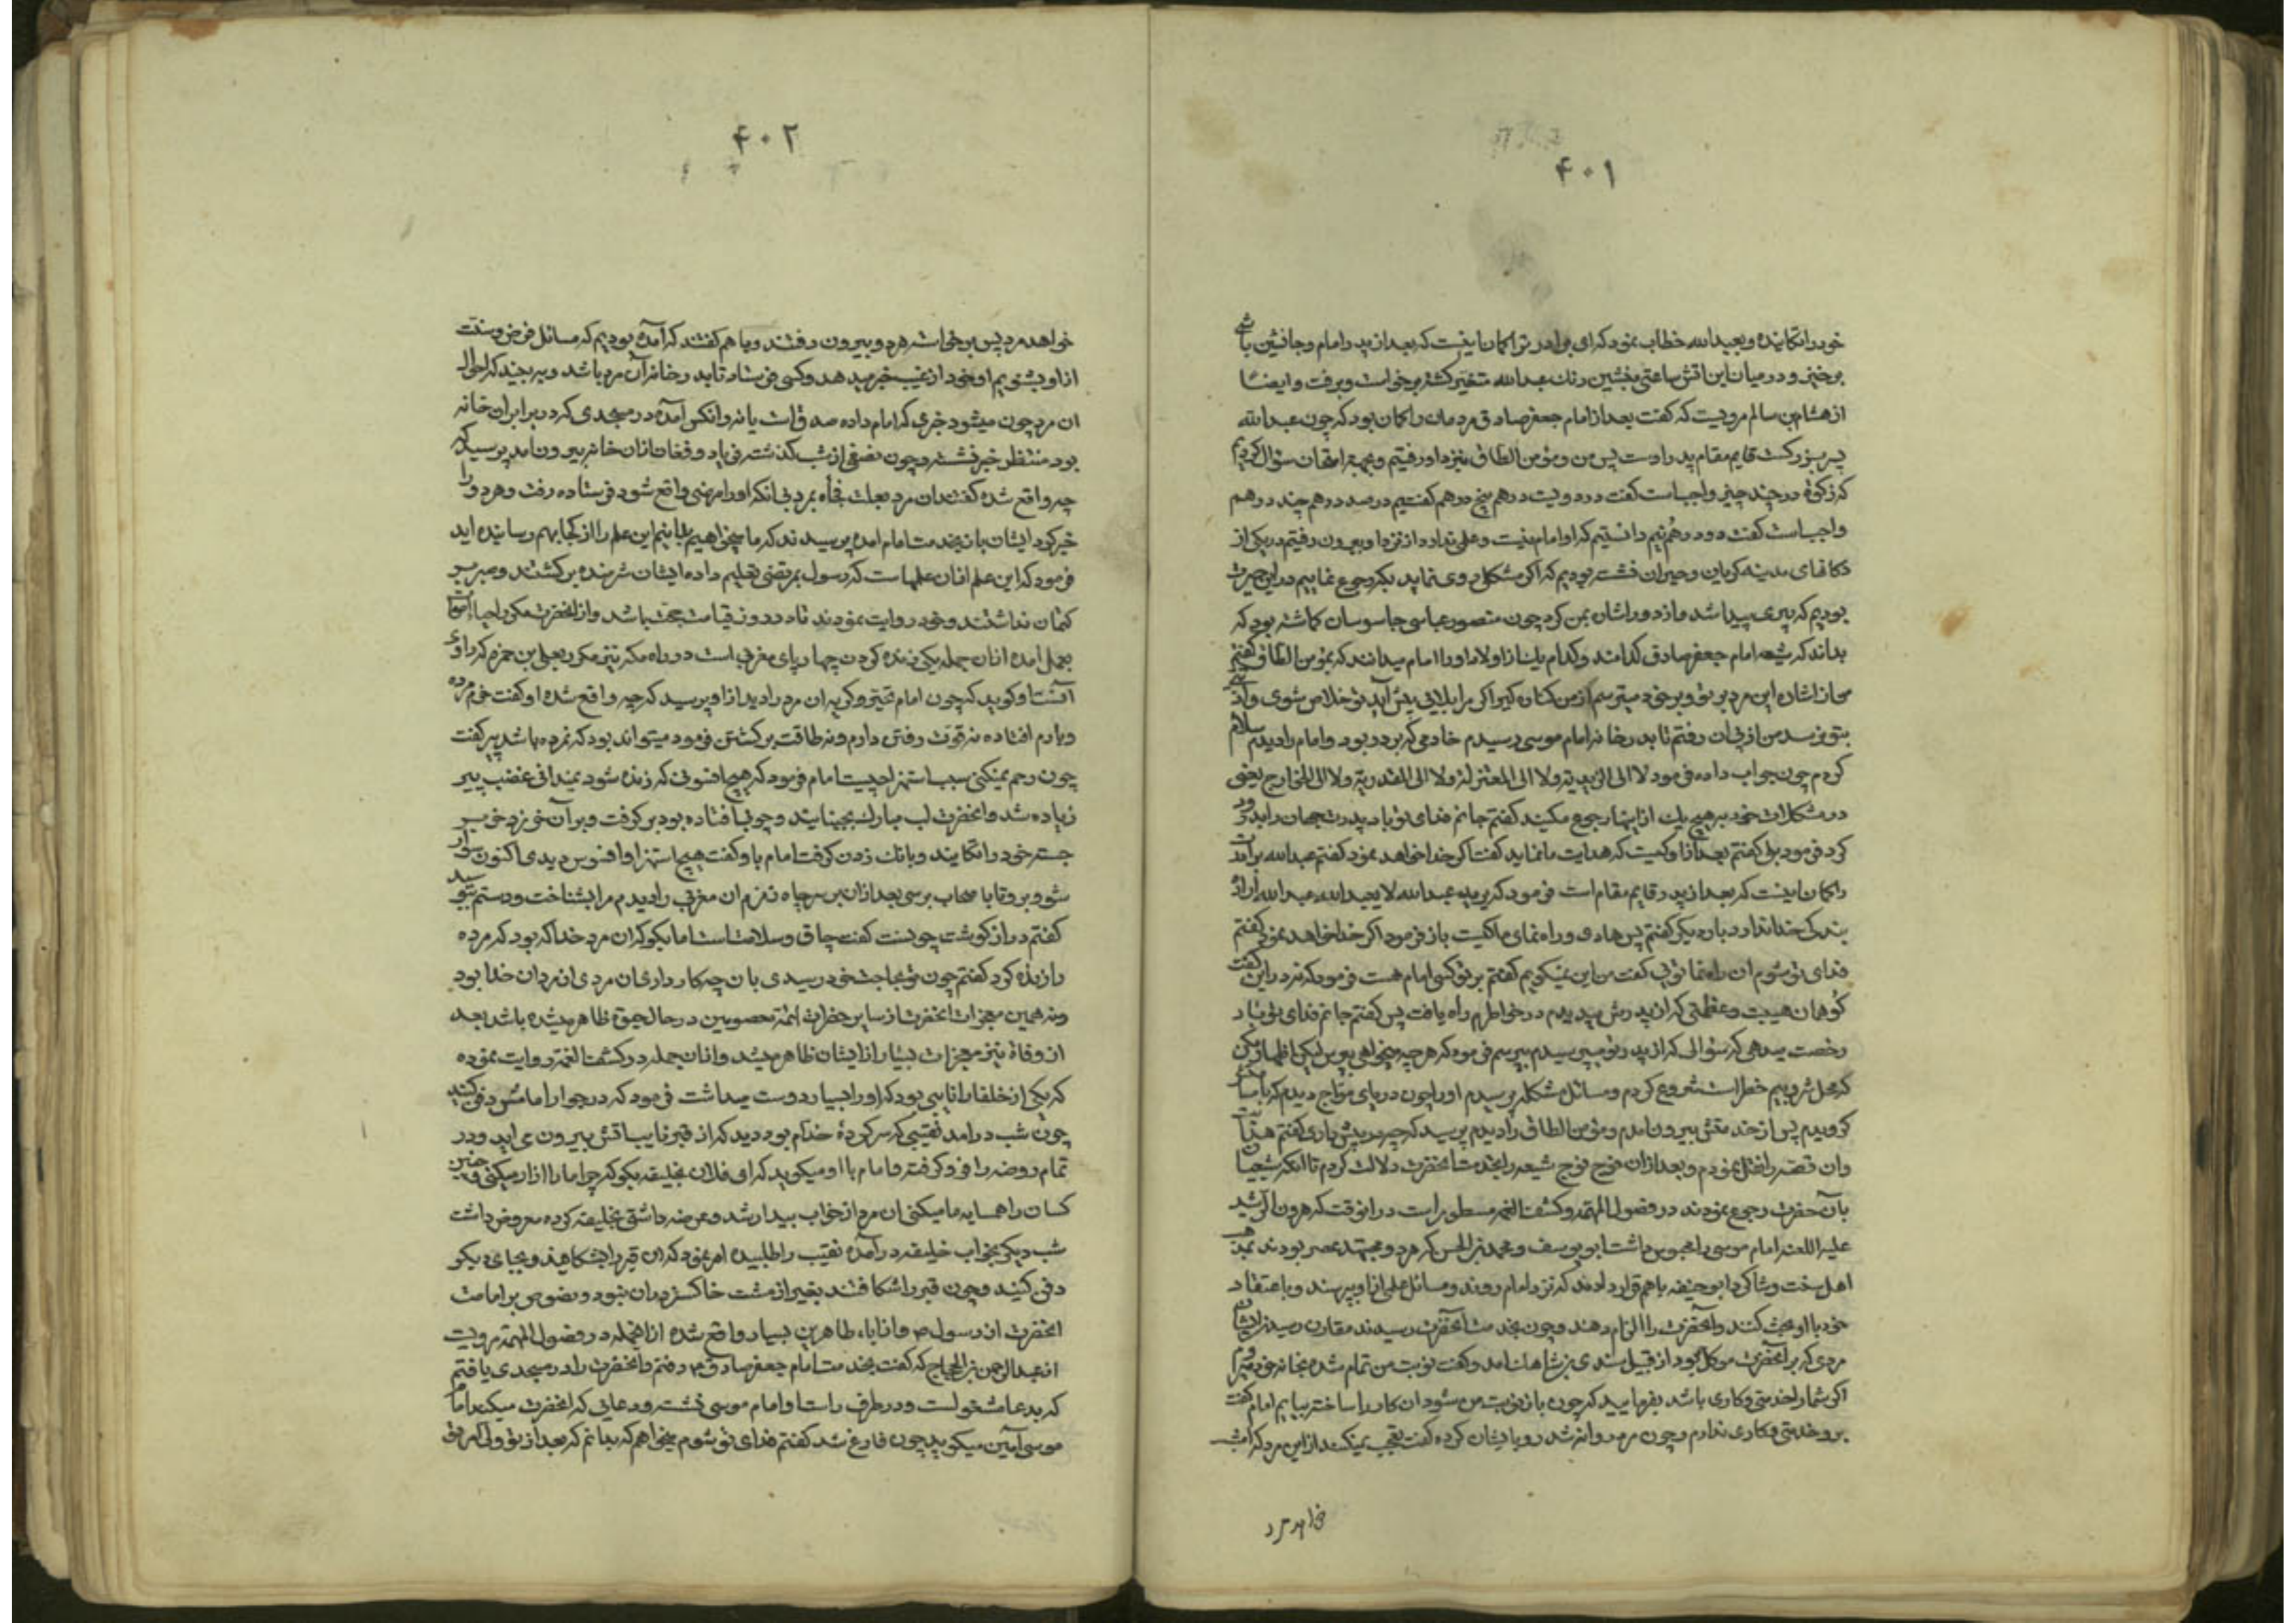 ۴۰۱
خود را تکانیده و بعبدالله خطاب نمود که ای برادر ترا کمان اینست که بعد از پدر امام و جانشین باشی
برخیز و در میان این اتش ساعتی بنشین رنك عبدالله متغیر کشته برخواست و برفت و ایضا
از هشام بن سالم مرویت که کفت بعد از امام جعفر صادق مردمان را کمان بود که چون عبدالله
پسر بزرکست قایم مقام پدر اوست پس من و مؤمن الطاق بنزد او رفتیم و بجهة امتحان سؤال کردیم
که زکوة در چند چیز واجب است کفت در دویست درهم پنج درهم کفتیم در صد درهم چند درهم
واجب است کفت دو درهم نیم دانستیم که او امام نیست و علمی ندارد از نزد او بیرون رفتیم در یکی از
دکانهای مدینه کریان و حیران نشسته بودیم که اکر مشکلی روی نماید بکه رجوع نماییم در این حیرت
بودیم که پیری پیدا شد و از دور اشان بمن کرد چون منصور عباسی جاسوسان کماشته بود که
بداند که شیعه امام جعفر صادق کدامند و کدام یك از اولاد او را امام میدانند که بمؤمن الطاق کفتم
من از اشاره این مرد بر تو و بر خود میترسم از من کناره کیر اکر مرا بلایی پیش آید تو خلاص شوی و آزار
بتو نرسد من از پی ان رفتم تا بدر خانه امام موسی رسیدم خادمی که بر در بود و امام را دیدم سلام
کردم چون جواب داده فرمود لا الی الزیدیة ولا الی المعتزلة ولا الی القدریة ولا الی الخوارج یعنی
در مشکلات خود بر هیچ یك از اینها رجوع مکنید کفتم جانم فدای تو باد پدرت جهان را بدرود
کرد فرمود بلی کفتم بعد از او کیست که هدایت ما نماید کفت اکر خدا خواهد نمود کفتم عبدالله برادرت
را کمان اینست که بعد از پدر قایم مقام است فرمود که یرید عبدالله لا یعبد الله عبدالله اراده
بندکی خدا ندارد بار دیکر کفتم پس هادی و راه نمای ما کیست باز فرمود اکر خدا خواهد نمود کفتم
فدای تو شوم ان راه نما تویی کفت من این نمیکویم کفتم بر تو کسی امام هست فرمود که نه در این کفت
کو همان هیبت و عظمتی که از پدرش میدیدم در خواطرم راه یافت پس کفتم جانم فدای تو باد
رخصت میدهی که سؤالی که از پدر تو میپرسیدم بپرسم فرمود که هر چه میخواهی بپرس لیکن اظهار مکن
که محل ترس و بیم خطر است شروع کردم و مسائل مشکله پرسیدم او را چون دریای مواج دیدم
کرویدم پس از خدمتش بیرون امدم و مؤمن الطاق را دیدم پرسید که چه در پیش داری کفتم هدایت
وان قصه را نقل نمودم و بعد از ان فوج فوج شیعه را بخدمت آنحضرت دلالت کردم تا آنکه شیعیان
بآن حضرت رجوع نمودند در فصول المهمه و کشف الغمه مسطور است در انوقت که هرون الرشید
علیه اللعنه امام موسی را محبوس داشت ابو یوسف و محمد بن الحسن که هر دو مجتهد عصر بودند بمذهب
اهل سنت و شاکرد ابو حنیفه با هم قرار دادند که نزد امام روند و مسائل علمی از او بپرسند و باعتقاد
خود با او بحث کنند و آنحضرت را الزام دهند و چون بخدمت آنحضرت رسیدند مقارن رسیدن ایشان
مردی که بر آنحضرت موکل بود از قبل سندی بن شاهك امد و کفت نوبت من تمام شده بخانه خود میروم
اکر شما را خدمتی و کاری باشد بفرمایید که چون باز نوبت من شود ان کار را ساخته بیایم امام کفت
برو خدمتی و کاری ندارم و چون مرد روانه شد رو بایشان کرده کفت تعجب نمیکنید از این مرد که امشب
خواهد مرد
۴۰۲
خواهد مرد پس برخواسته هر دو بیرون رفتند و با هم کفتند که آمده بودیم که مسائل فرض و سنت
از او بشنویم او خود از غیب خبر میدهد و کسی فرستاد تا بدر خانه آن مرد باشد و به بیند که احوال
ان مرد چون میشود خبری که امام داده صدق است یا نه و انکس آمده در مسجدی که در برابر ان خانه
بود منتظر خبر نشسته چون نصفی از شب کذشته فریاد و فغان از ان خانه بیرون امد پرسید که
چه واقع شده کفتند ان مرد بعلت فجأه بمرد بی انکه او را مرضی واقع شود فرستاده رفت و هر دو را
خبر کرد ایشان باز بخدمت امام امده پرسیدند که ما میخواهیم بدانیم این علم را از کجا بهم رسانیده اید
فرمود که این علم از ان علمهاست که رسول بمرتضی تعلیم داده ایشان شرمنده بر کشتند و صبر بر
کتمان نداشتند و خود روایت نمودند تا در روز قیامت حجت باشد و از آنحضرت مکرر احیا اموات
بعمل آمده از ان جمله یکی زنده کردن چهارپای مغربی است در راه مکه نیز مکرر بعلی بن حمزه که راوی
آنست او کوید که چون امام تحیر و کریه ان مرد را دید از او پرسید که چه واقع شده او کفت خرم مرده
و بارم افتاده نه قوت رفتن دارم و نه طاقت بر کشتن فرمود میتواند بود که نمرده باشد پیر کفت
چون رحم نمیکنی سبب استهزا چیست امام فرمود که هیچ افسونی که زنده شود نمیدانی غضب پیر
زیاده شد و انحضرت لب مبارك بجنبانید و چوبی افتاده بود بر کرفت و بر آن خر زد خر بر
جسته خود را تکانید و بانك زدن کرفت امام با او کفت هیچ استهزا و افسوس دیدی اکنون سوار
شو و برو تا باصحاب برسی بعد از ان بر سر چاه زمزم ان مغربی را دیدم مرا بشناخت و دستم ببوسید
کفتم دراز کوشت چونست کفت چاق و سلامت است اما بکو که ان مرد خدا که بود که مرده
را زنده کرد کفتم چون تو بحاجت خود رسیدی با ن چه کار داری ان مردی از مردان خدا بود
و نه همین معجزات انحضرت از سایر حضرات ائمه معصومین در حال حیوة ظاهر میشده باشد بعد
از وفاة نیز معجزات بسیار از ایشان ظاهر میشد و از ان جمله در کشف الغمه روایت نموده
که یکی از خلفا را نایبی بود که او را بسیار دوست میداشت فرمود که در جوار امامش دفن کنید
چون شب درامد نقیبی که سر کردۀ خدام بود دید که از قبر نایب اتش بیرون می اید و دود
تمام روضه را فرو کرفته و امام با او میکوید که ای فلان بخلیفه بکو که چرا ما را ازار میکنی و چنین
کسان را همسایه ما میکنی ان مرد از خواب بیدار شد و عرضه داشتی بخلیفه کرده معروض داشت
شب دیکر بخواب خلیفه درآمده نقیب را طلبیده امر نمود که ان قبر را بشکافند و بجای دیکر
دفن کنند و چون قبر را شکافتند بغیر از مشت خاکستر در ان نبود و نصوص بر امامت
انحضرت از رسول ص و از اباء طاهرین بسیار واقع شده از انجمله در فصول المهمه مرویست
از عبدالرحمن بن الحجاج که کفت بخدمت امام جعفر صادق ع م رفتم و انحضرت را در مسجدی یافتم
که بدعا مشغولست و در طرف راست او امام موسی نشسته و دعایی که انحضرت میکند امام
موسی آمین میکوید چون فارغ شد کفتم فدای تو شوم میخواهم که بدانم که بعد از تو ولی امر تو